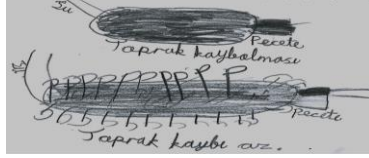 Su
Peçete
Toprak kaybolması
Su
Peçete
Toprak kaybı az.